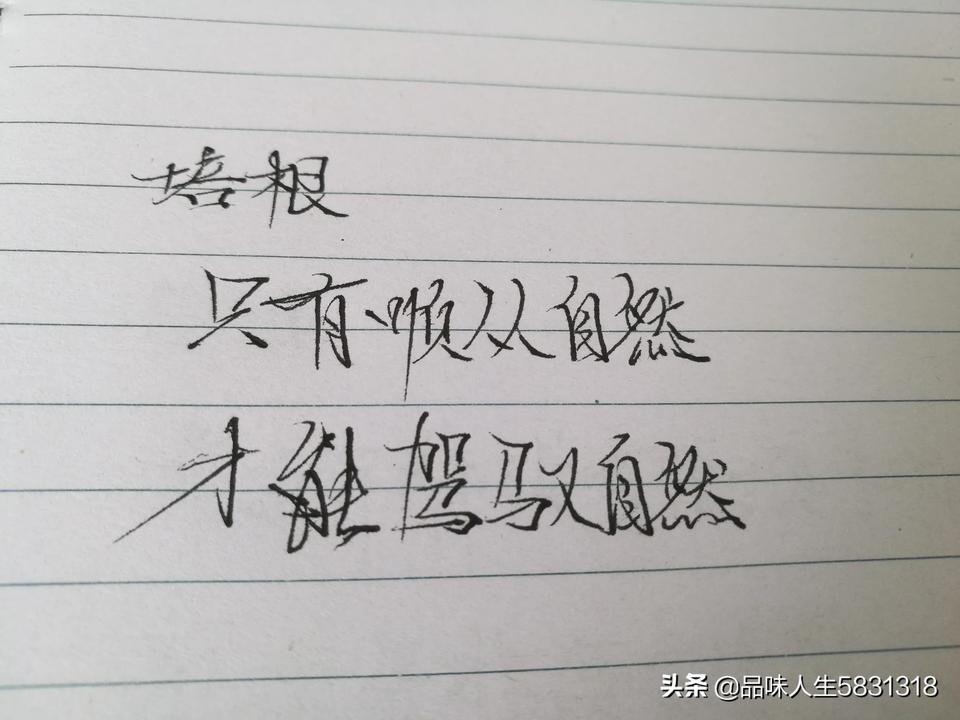 培根
只有顺从自然
才能驾驭自然
头条 @品味人生5831318